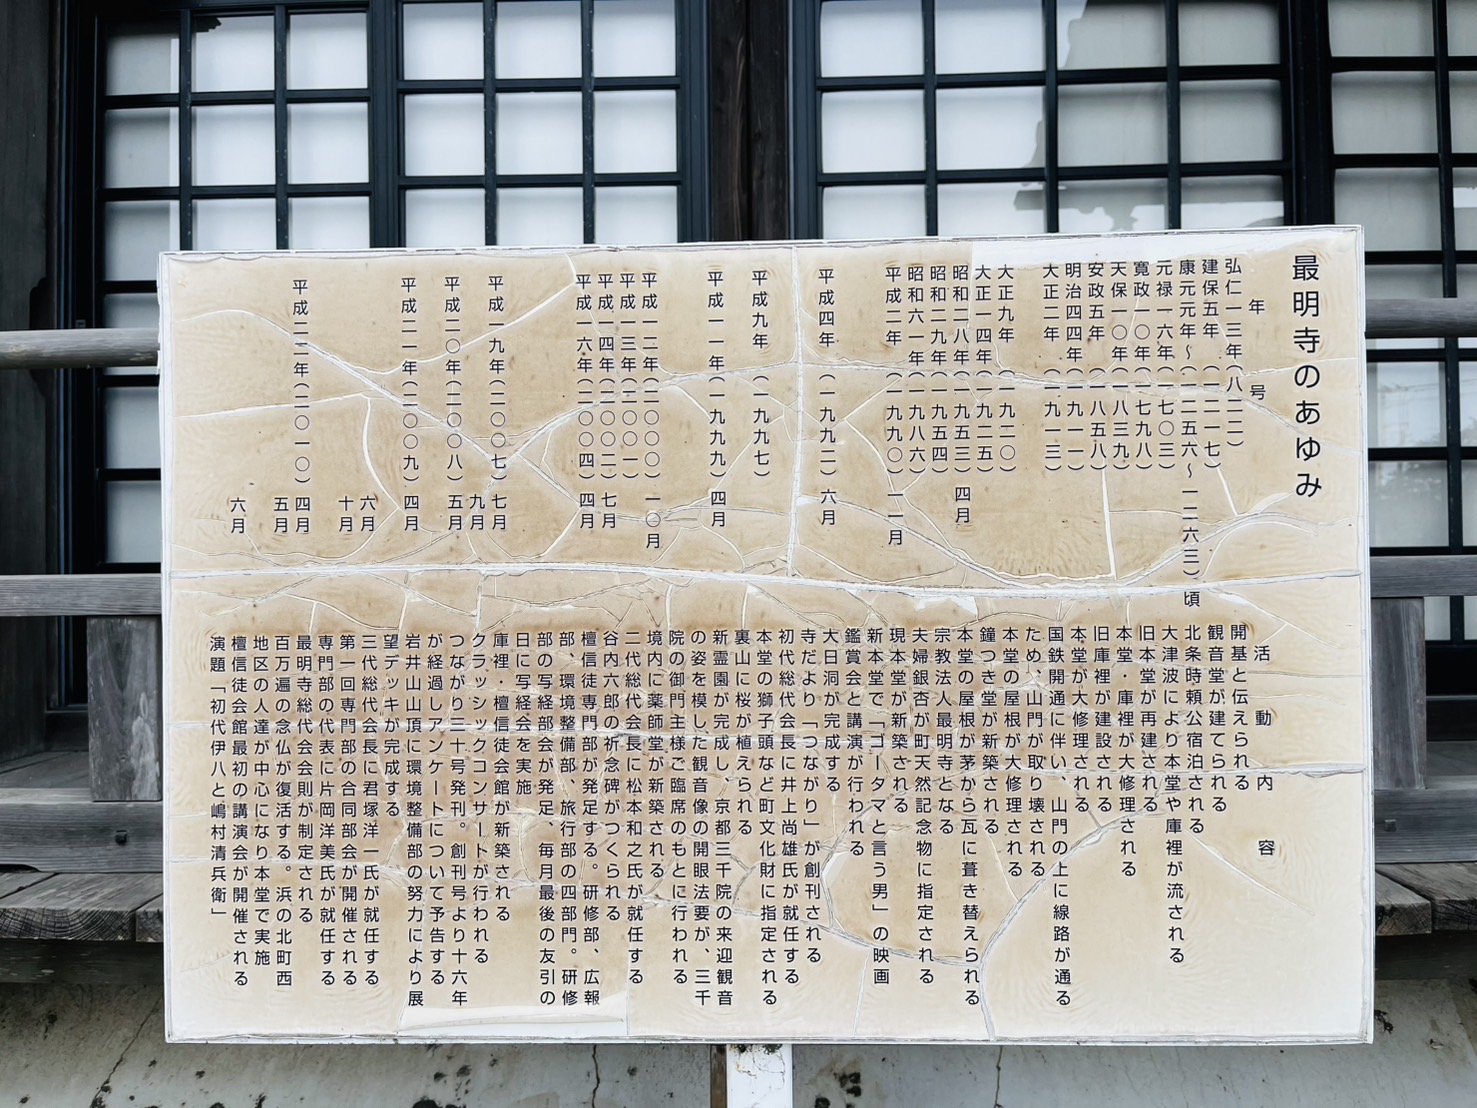 最明寺のあゆみ
年号 活動内容
弘仁一三年(八二二) 開基と伝えられる
建保五年(一二一七) 観音堂が建てられる
康元元年～(一二五六～一二六三)頃 北条時頼公宿泊される
元禄一六年(一七〇三) 大津波により本堂や庫裡が流される
寛政一〇年(一七九八) 旧本堂が再建される
天保一〇年(一八三九) 本堂・庫裡が大修理される
安政五年(一八五八) 旧庫裡が建設される
明治四四年(一九一一) 本堂が大修理される
大正二年(一九一三) 国鉄開通に伴い、山門の上に線路が通る
ため、山門が取り壊される
大正九年(一九二〇) 本堂の屋根が大修理される
大正一四年(一九二五) 鐘つき堂が新築される
昭和二八年(一九五三)四月 本堂の屋根が茅から瓦に葺き替えられる
昭和二九年(一九五四) 宗教法人最明寺となる
昭和六一年(一九八六) 夫婦銀杏が町天然記念物に指定される
平成二年(一九九〇)一一月 現本堂が新築される
新本堂で「ゴータマと言う男」の映画
鑑賞会と講演が行われる
平成四年(一九九二)六月 大日洞が完成する
寺だより「つながり」が創刊される
初代総代会長に井上尚雄氏が就任する
平成九年(一九九七) 本堂の獅子頭など町文化財に指定される
裏山に桜が植えられる
平成一一年(一九九九)四月 新霊園が完成し、京都三千院の来迎観音
の姿を模した観音像の開眼法要が、三千
院の御門主様ご臨席のもとに行われる
平成一二年(二〇〇〇)一〇月 境内に薬師堂が新築される
平成一三年(二〇〇一) 二代総代会長に松本和之氏が就任する
平成一四年(二〇〇二)七月 谷内六郎の祈念碑がつくられる
平成一六年(二〇〇四)四月 檀信徒専門部が発足する。研修部、広報
部、環境整備部、旅行部の四部門。研修
部の写経部会が発足、毎月最後の友引の
日に写経会を実施
平成一九年(二〇〇七)七月 庫裡・檀信徒会館が新築される
九月 クラッシックコンサートが行われる
平成二〇年(二〇〇八)五月 つながり三十号発刊。創刊号より十六年
が経過しアンケートについて予告する
平成二一年(二〇〇九)四月 岩井山山頂に環境整備部の努力により展
望デッキが完成する
六月 三代総代会長に君塚洋一氏が就任する
十月 第一回専門部の合同部会が開催される
専門部の代表に片岡洋美氏が就任する
平成二二年(二〇一〇)四月 最明寺総代会会則が制定される
五月 百万遍の念仏が復活する。浜の北町西
地区の人達が中心になり本堂で実施
六月 檀信徒会館最初の講演会が開催される
演題「初代伊八と嶋村清兵衛」